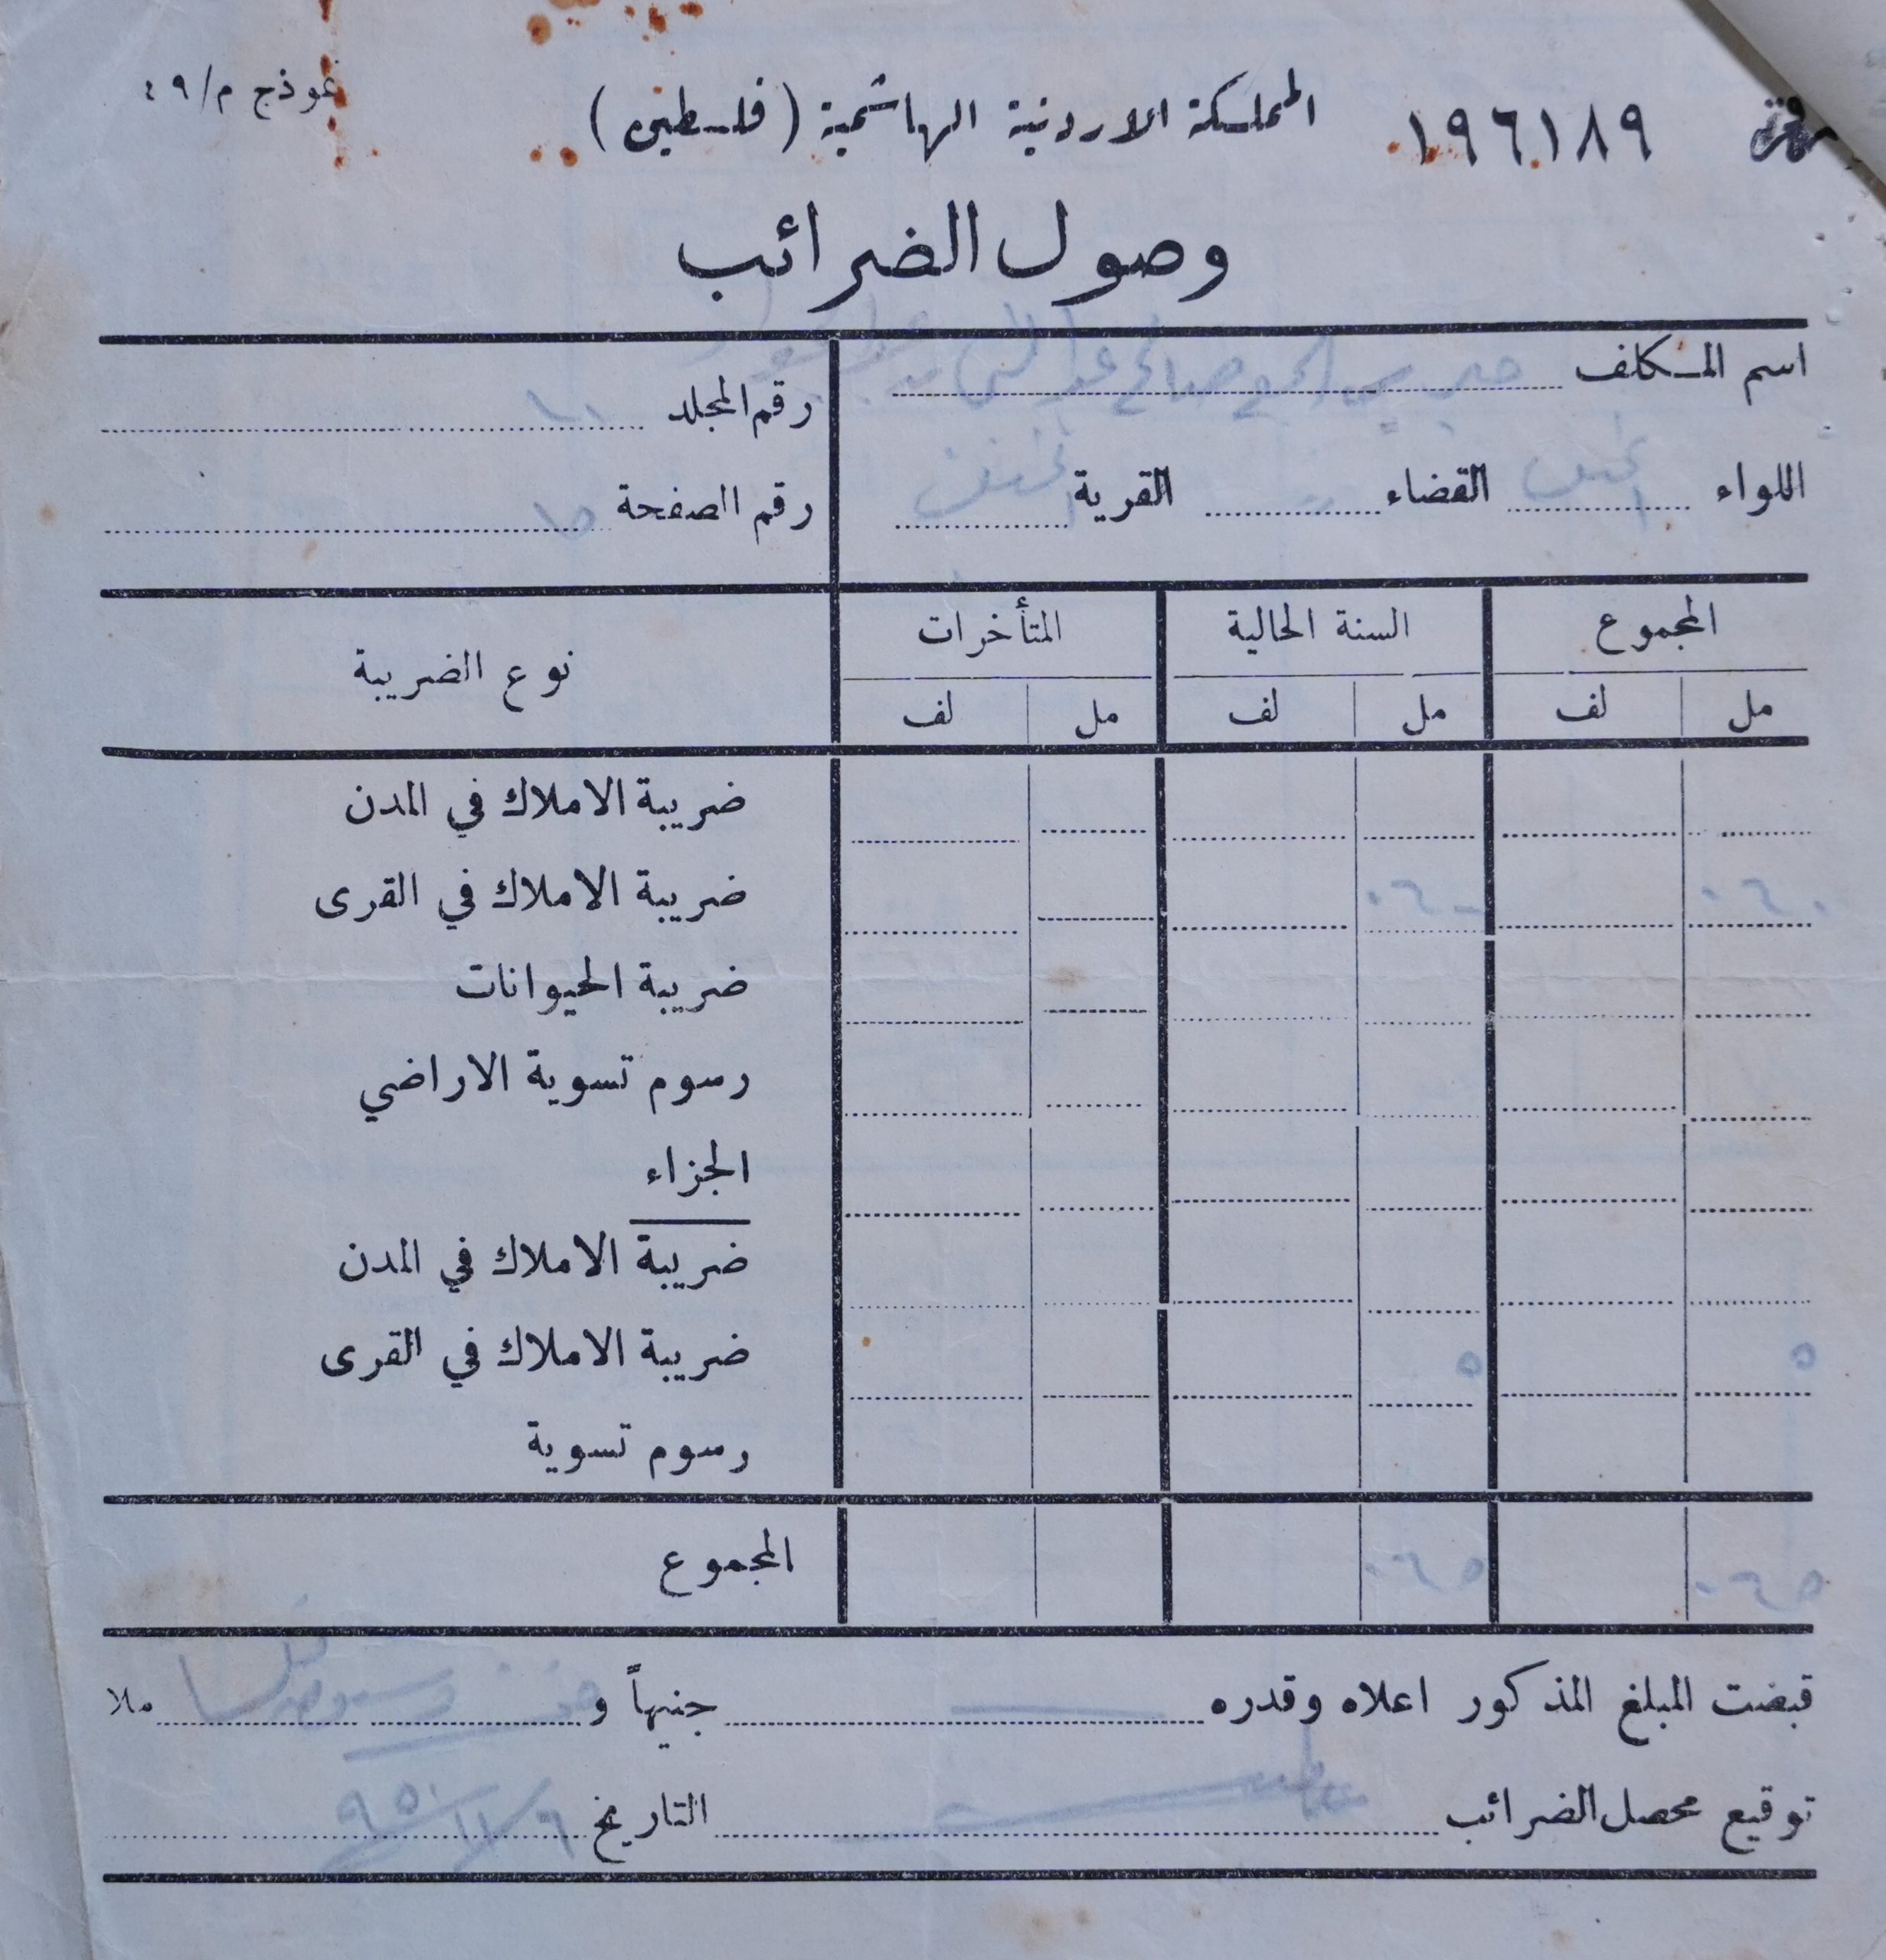 نموذج م/٤٩
١٩٦١٨٩ المملكة الاردنية الهاشمية (فلسطين)
وصول الضرائب
اسم المكلف الحج صالح
رقم المجلد
اللواء الخليل القضاء القرية
رقم الصفحة ١٥
المجموع السنة الحالية المتأخرات نوع الضريبة
مل لف مل لف مل لف
ضريبة الاملاك في المدن
٠٦٠ ٠٦٠ ضريبة الاملاك في القرى
ضريبة الحيوانات
رسوم تسوية الاراضي
الجزاء
ضريبة الاملاك في المدن
٥ ٥ ضريبة الاملاك في القرى
رسوم تسوية
٠٦٥ ٠٦٥ المجموع
قبضت المبلغ المذكور اعلاه وقدره جنيهاً و خمسة وستون ملا
توقيع محصل الضرائب التاريخ ٦/١١/٩٥٠